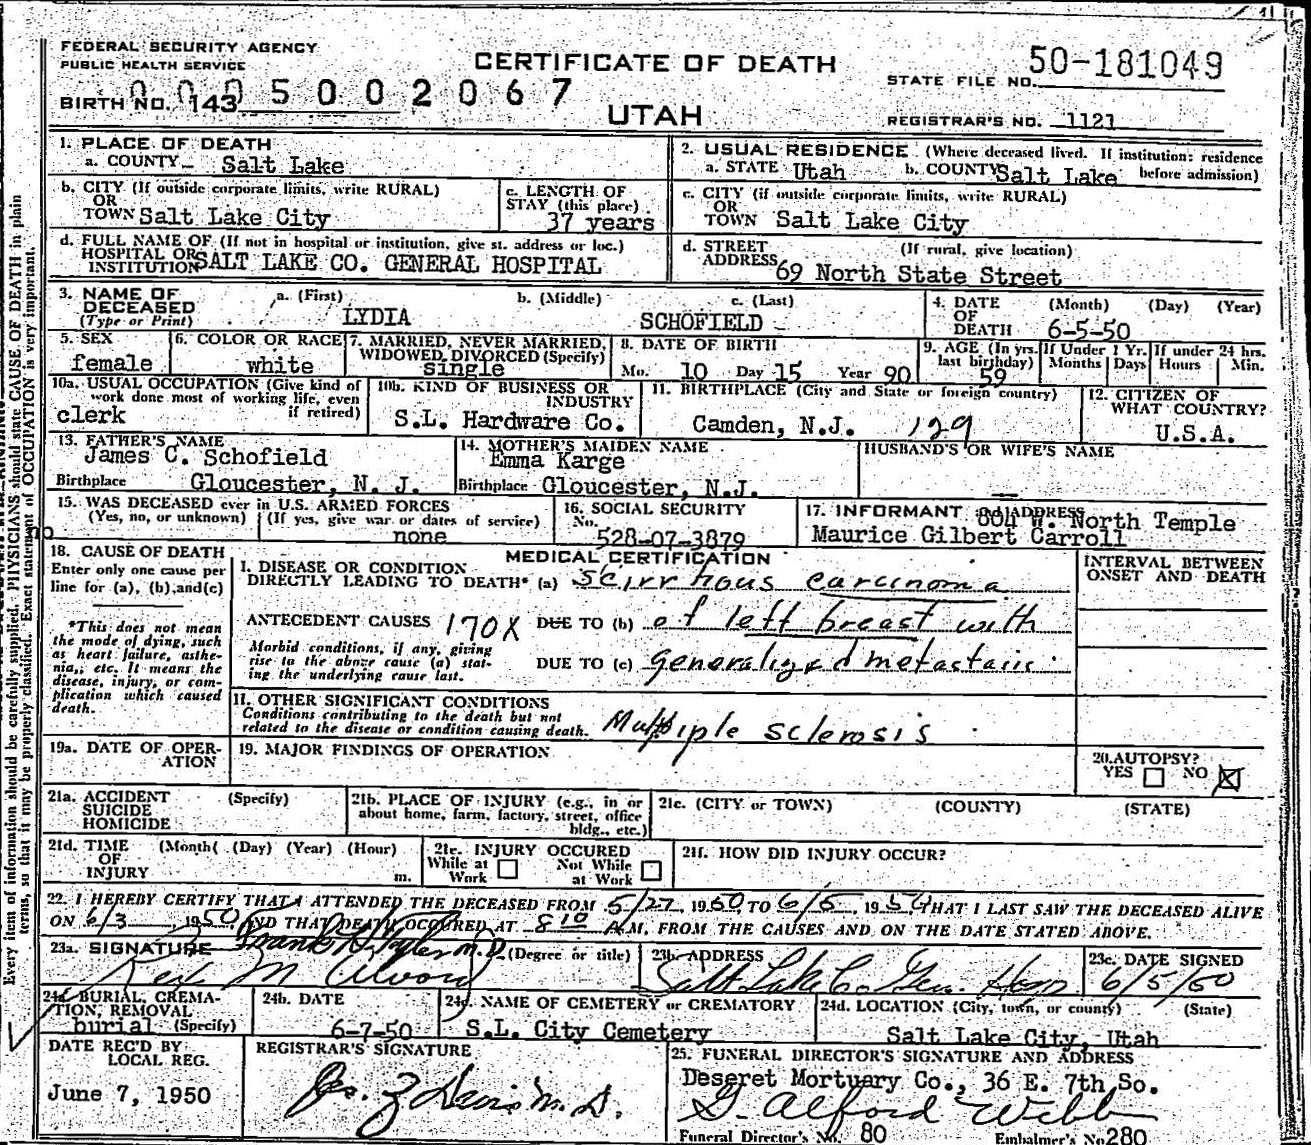 FEDERAL SECURITY AGENCY
PUBLIC HEALTH SERVICE
CERTIFICATE OF DEATH
STATE FILE NO. 50-181049
BIRTH NO. 143
0005002067
UTAH
REGISTRAR'S NO. 1121
1. PLACE OF DEATH
a. COUNTY Salt Lake
2. USUAL RESIDENCE (Where deceased lived. If institution: residence before admission)
a. STATE Utah b. COUNTY Salt Lake
b. CITY (If outside corporate limits, write RURAL)
OR
TOWN Salt Lake City
c. LENGTH OF
STAY (this place)
37 years
c. CITY (if outside corporate limits, write RURAL)
OR
TOWN Salt Lake City
d. FULL NAME OF (If not in hospital or institution, give st. address or loc.)
HOSPITAL OR
INSTITUTION SALT LAKE CO. GENERAL HOSPITAL
d. STREET (If rural, give location)
ADDRESS 69 North State Street
3. NAME OF
DECEASED
(Type or Print)
a. (First) b. (Middle) c. (Last)
LYDIA SCHOFIELD
4. DATE (Month) (Day) (Year)
OF
DEATH 6-5-50
5. SEX
female
6. COLOR OR RACE
white
7. MARRIED, NEVER MARRIED,
WIDOWED, DIVORCED (Specify)
single
8. DATE OF BIRTH
Mo. 10 Day 15 Year 90
9. AGE (In yrs.
last birthday)
59
If Under 1 Yr.
Months Days
If under 24 hrs.
Hours Min.
10a. USUAL OCCUPATION (Give kind of
work done most of working life, even
if retired)
clerk
10b. KIND OF BUSINESS OR
INDUSTRY
S.L. Hardware Co.
11. BIRTHPLACE (City and State or foreign country)
Camden, N.J. 129
12. CITIZEN OF
WHAT COUNTRY?
U.S.A.
13. FATHER'S NAME
James C. Schofield
Birthplace Gloucester, N. J.
14. MOTHER'S MAIDEN NAME
Emma Karge
Birthplace Gloucester, N.J.
HUSBAND'S OR WIFE'S NAME
15. WAS DECEASED ever in U.S. ARMED FORCES
(Yes, no, or unknown) (If yes, give war or dates of service)
no none
16. SOCIAL SECURITY
No.
528-07-3879
17. INFORMANT ADDRESS
804 W. North Temple
Maurice Gilbert Carroll
18. CAUSE OF DEATH
Enter only one cause per
line for (a), (b), and (c)
*This does not mean
the mode of dying, such
as heart failure, asthe-
nia, etc. It means the
disease, injury, or com-
plication which caused
death.
MEDICAL CERTIFICATION
I. DISEASE OR CONDITION
DIRECTLY LEADING TO DEATH* (a) Scirrhous carcinoma
ANTECEDENT CAUSES 170X DUE TO (b) of left breast with
Morbid conditions, if any, giving
rise to the above cause (a) stat-
ing the underlying cause last.
DUE TO (c) generalized metastasis
INTERVAL BETWEEN
ONSET AND DEATH
II. OTHER SIGNIFICANT CONDITIONS
Conditions contributing to the death but not
related to the disease or condition causing death.
Multiple sclerosis
19a. DATE OF OPER-
ATION
19. MAJOR FINDINGS OF OPERATION
20. AUTOPSY?
YES NO
21a. ACCIDENT (Specify)
SUICIDE
HOMICIDE
21b. PLACE OF INJURY (e.g., in or
about home, farm, factory, street, office
bldg., etc.)
21c. (CITY or TOWN) (COUNTY) (STATE)
21d. TIME (Month( (Day) (Year) (Hour)
OF
INJURY m.
21e. INJURY OCCURED
While at Not While
Work at Work
21f. HOW DID INJURY OCCUR?
22. I HEREBY CERTIFY THAT I ATTENDED THE DECEASED FROM 5/27, 1950, TO 6/5, 1950, THAT I LAST SAW THE DECEASED ALIVE
ON 6/3 1950, AND THAT DEATH OCCURED AT 8 10 A.M., FROM THE CAUSES AND ON THE DATE STATED ABOVE.
23a. SIGNATURE (Degree or title)
Rex M Alvord
23b. ADDRESS
Salt Lake Co Gen. Hosp
23c. DATE SIGNED
6/5/50
24a. BURIAL, CREMA-
TION, REMOVAL
burial (Specify)
24b. DATE
6-7-50
24c. NAME OF CEMETERY or CREMATORY
S.L. City Cemetery
24d. LOCATION (City, town, or county) (State)
Salt Lake City, Utah
DATE REC'D BY
LOCAL REG.
June 7, 1950
REGISTRAR'S SIGNATURE
25. FUNERAL DIRECTOR'S SIGNATURE AND ADDRESS
Deseret Mortuary Co., 36 E. 7th So.
G. Alford Webb
Funeral Director's No. 80 Embalmer's No 280
Every item of information should be carefully supplied. PHYSICIANS should state CAUSE OF DEATH in plain
terms, so that it may be properly classified. Exact statement of OCCUPATION is very important.